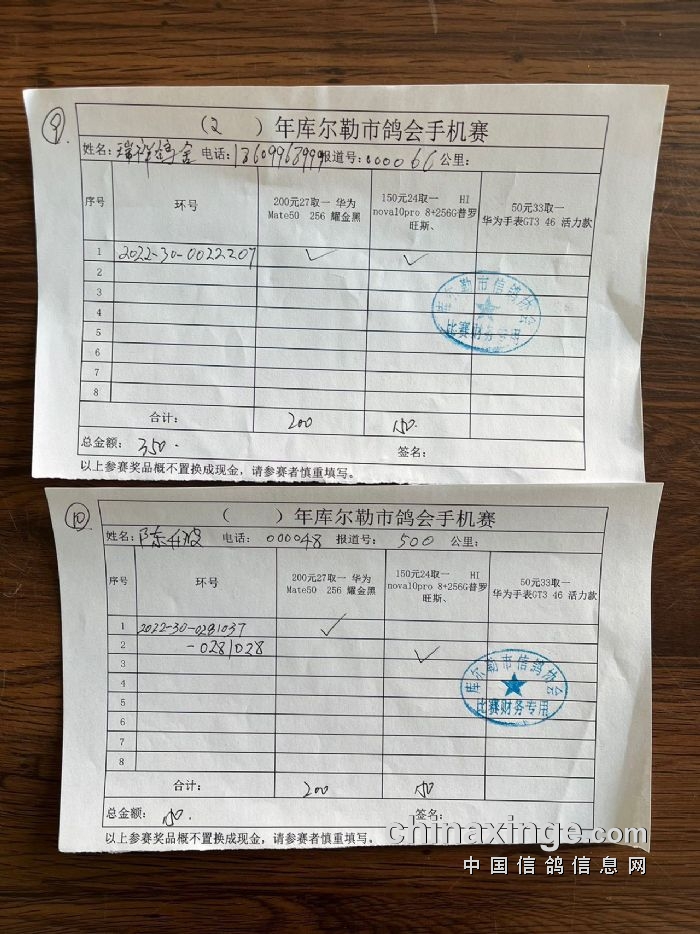 9
(2 ) 年库尔勒市鸽会手机赛
姓名: 瑞祥鸽舍 电话: 13609963999 报道号: 000066 公里:
序号 环号 200元27取一 华为 Mate50 256 耀金黑 150元24取一 HI nova10pro 8+256G普罗旺斯、 50元33取一 华为手表GT3 46 活力款
1 2022-30-0022207 ✓ ✓
2
3
4
5
6
7
8
库尔勒市信鸽协会
比赛财务专用
合计: 200 150.
总金额: 350. 签名:
以上参赛奖品概不置换成现金, 请参赛者慎重填写。
10
( ) 年库尔勒市鸽会手机赛
姓名: 陈 波 电话: 000048 报道号: 500 公里:
序号 环号 200元27取一 华为 Mate50 256 耀金黑 150元24取一 HI nova10pro 8+256G普罗旺斯、 50元33取一 华为手表GT3 46 活力款
1 2022-30-0281037 ✓
2 -0281028 ✓
3
4
5
6
7
8
库尔勒市信鸽协会
比赛财务专用
合计: 200 150
总金额: 150. 签名:
以上参赛奖品概不置换成现金, 请参赛者慎重填写。
chinaxinge.com
中国信鸽信息网